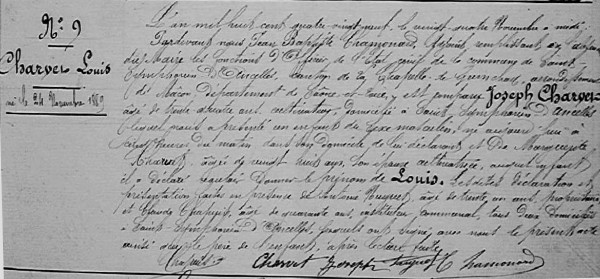 N.° 9
Charvet Louis
né le 24 Novembre 1889
L'an mil huit cent quatre vingt neuf, le vingt quatre Novembre à midi
Pardevant nous Jean Baptiste Chamonard, adjoint, remplissant
du Maire les fonctions d'officier de l'état civil de la commune de Saint
Symphorien d'Ancelles, canton de la Chapelle de Guinchay, arrondissement
de Mâcon, Département de Saône et Loire, est comparu Joseph Charvet
âgé de trente quatre ans, cultivateur, domicilié à Saint Symphorien d'Ancelles
lequel nous a présenté un enfant du sexe masculin, né aujourd'hui à
heures du matin dans son domicile de lui déclarant et de Marguerite
Charvet, âgée de vingt huit ans, son épouse cultivatrice, auquel enfant
il a déclaré vouloir donner le prénom de Louis. Lesdites déclaration et
présentation faites en présence de Antoine âgé de trente un ans, propriétaire
et Claude Chapuis, âgé de quarante ans, instituteur communal, tous deux domiciliés
à Saint Symphorien d'Ancelles, lesquels ont signé avec nous le présent acte
ainsi que le père de l'enfant, après lecture faite.
Chapuis Charvet Joseph Chamonard